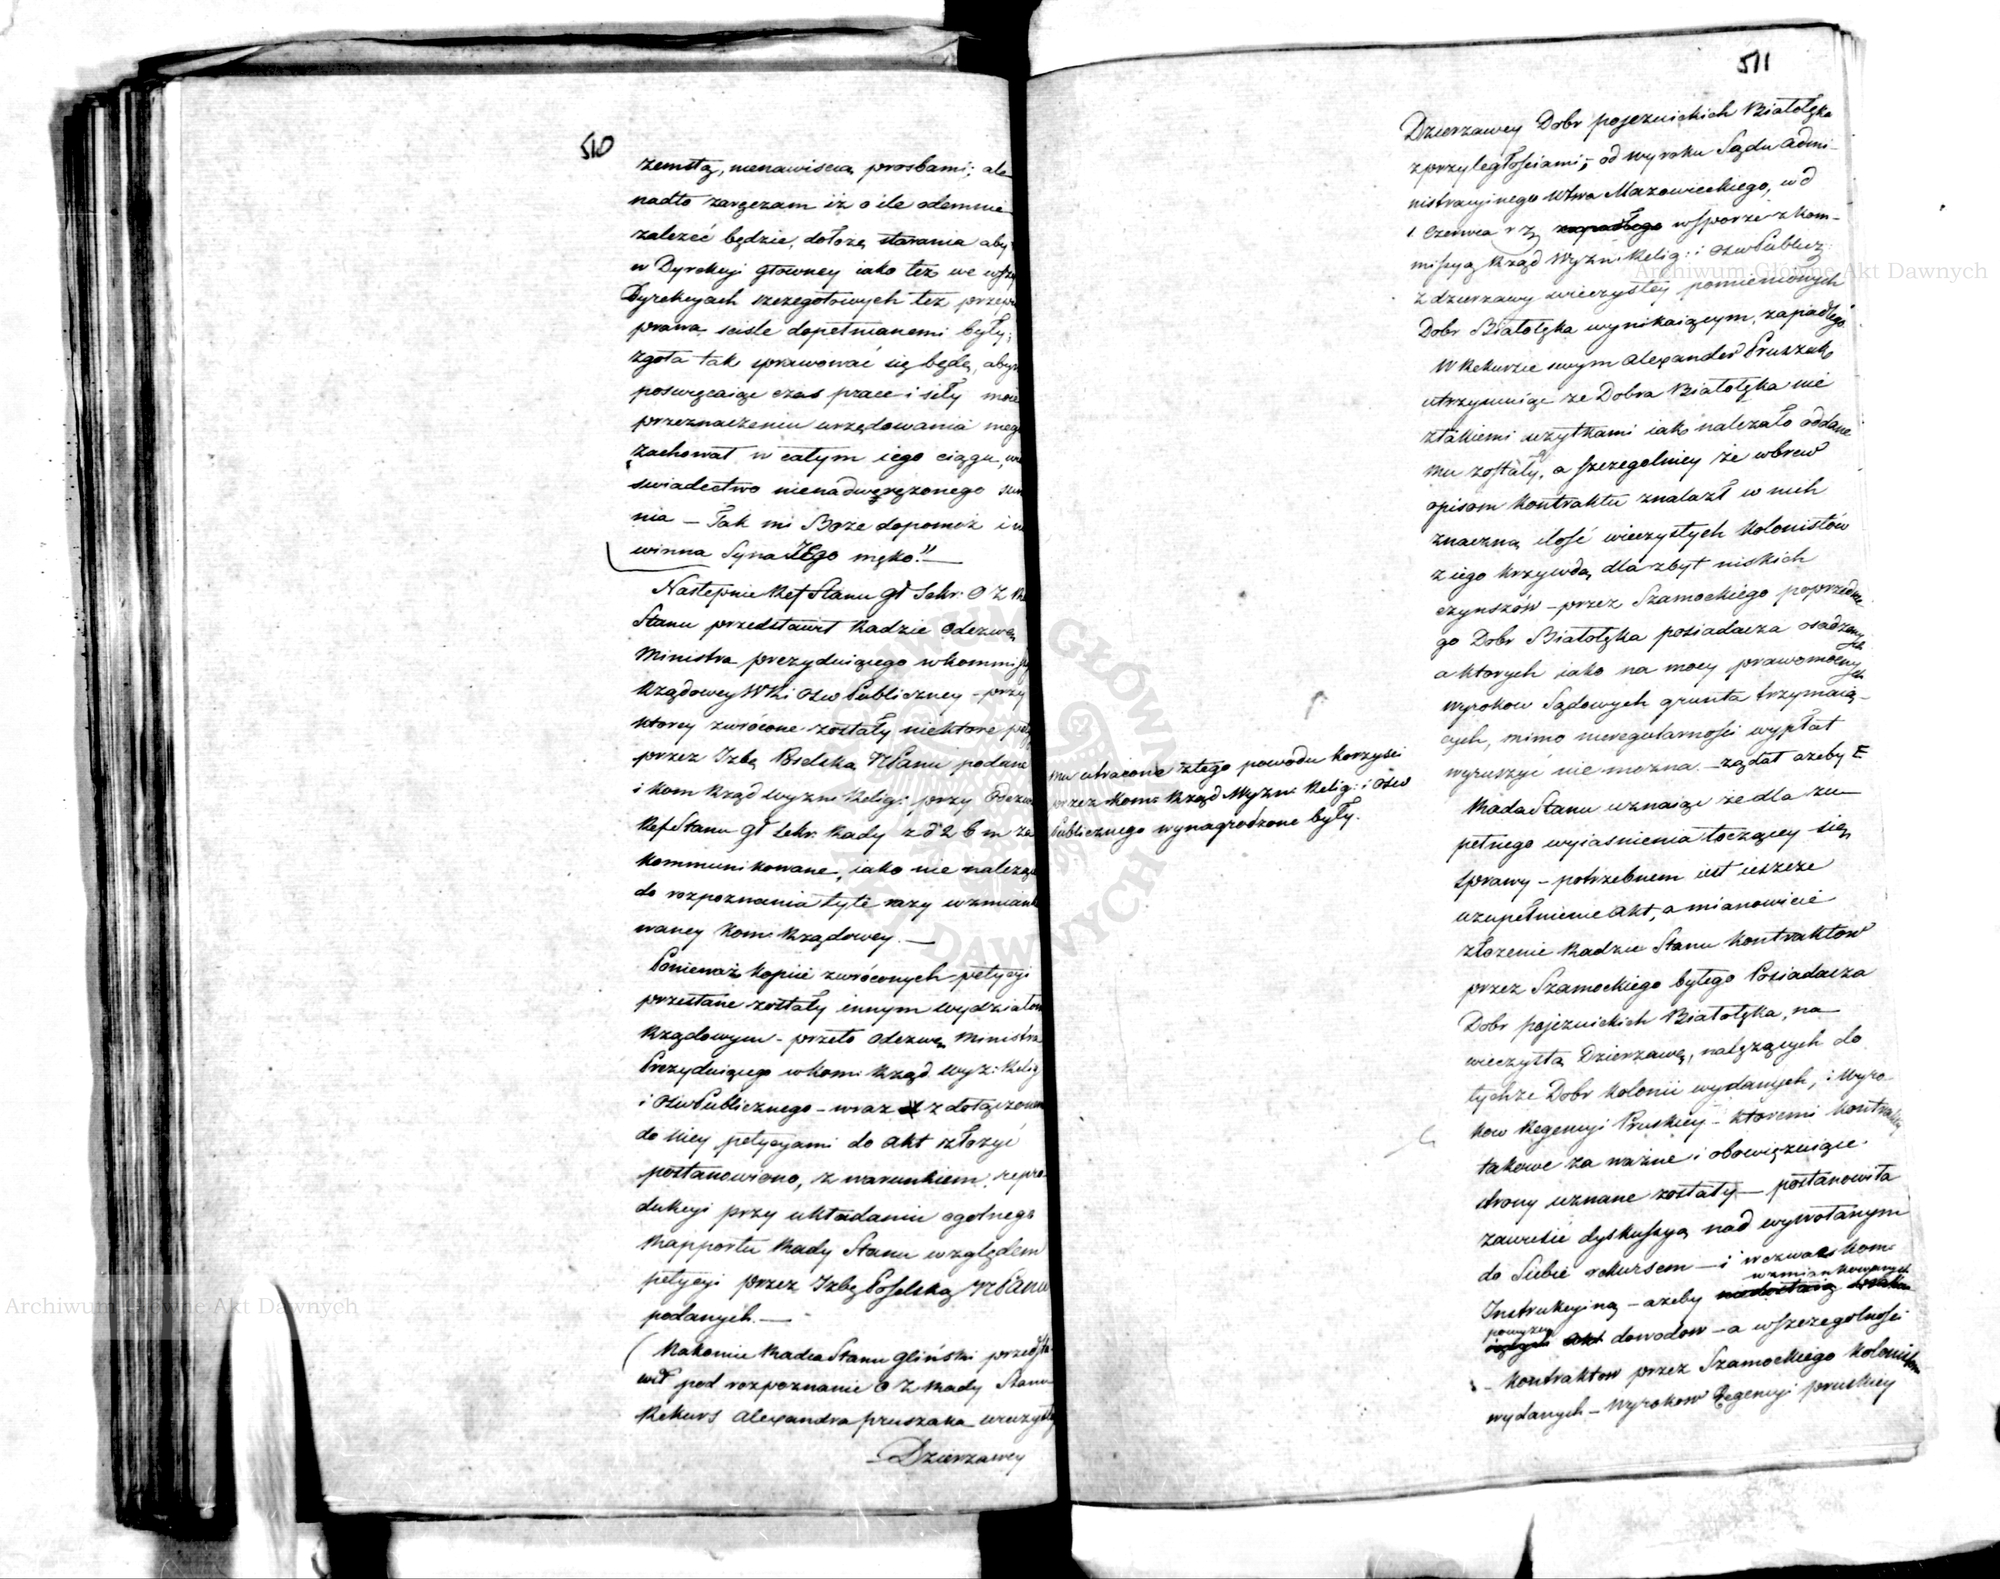 510
zemstą, nienawiscią prosbami; ale
nadto zaręczam iż o ile odemnie
zalezeć będzie, dołożę starania aby
w Dyrekcyi głowney iako tez we
Dyrekcyach szczegołowych też
prawa scisle dopełnianemi były;
zgoła tak sprawować się będę,
poswięcaiąc czas prace i siły
przeznaczeniu urzędowania
zachował w całym iego ciągu,
swiadectwo nienadwerężonego
nia — Tak mi Boże dopomoż i
winna Syna Jego męko!! —
Następnie Ref Stanu gł Sekr: O Z
Stanu przedstawił Radzie Odezwę
Ministra prezyduiącego w Kommissyi
Rządowey WRi Osw Publiczney – przy
ktorey zwrócone zostały niektore
przez Izbę Poselską NPanu podane
i Kom Rząd wyzn: Relig: przy Odezwie
Ref Stanu gł Sekr: Rady z d 26 m
kommunikowane, iako nie należące
do rozpoznania tyle razy
waney Kom: Rządowey. —
Ponieważ kopiie zwróconych petycyi
przesłane zostały innym wydziałom
Rządowym – przeto Odezwę Ministra
Prezyduiącego w Kom: Rząd. wyz: Relig
i Osw Publicznego – wraz z dołączonemi
do niey petycyami do akt złożyć
postanowiono, z warunkiem repro-
dukcyi przy układaniu ogolnego
Rapportu Rady Stanu względem
petycyi przez Izbę Poselską NPanu
podanych. —
( Nakoniec Radca Stanu Gliński przedsta-
wił pod rozpoznanie O Z Rady Stanu
Rekurs Alexandra Pruszaka wieczystey
Dzierzawcy
511
Dzierzawcy Dobr pojezuickich Białołęka
z przyległościami; od wyroku Sądu Admi-
nistracyinego Wtwa Mazowieckiego, w d
1. Czerwca r z zapadłego w sporze z Kom-
missyą Rząd Wyzn: Relig: i Osw Publicz:
z dzierzawy wieczystey pomienionych
Dobr Białołęka wynikaiącym, zapadłego
W Rekursie swym Alexander Pruszak
utrzymuiąc ze Dobra Białołęka nie
z takiemi użytkami iak należało oddane
mu zostały, a szczegolniey że wbrew
opisom kontraktu znalazł w nich
znaczną ilość wieczystych kolonistów
z iego krzywdą, dla zbyt niskich
czynszów – przez Szamockiego poprzednie-
go Dobr Białołęka posiadacza osadzonych
a ktorych iako na mocy prawomocnych
wyrokow Sądowych grunta trzymaią-
cych, mimo nieregularności wypłat
wyruszyć nie można – żądał azeby
mu utracone z tego powodu korzyści
przez Kom: Rząd Wyzn: Relig: i Osw
Publicznego wynagrodzone były.
Rada Stanu uznaiąc że dla zu-
pełnego wyiasnienia toczącey się
sprawy – potrzebnem iest ieszcze
uzupełnienie akt, a mianowicie
złożenie Radzie Stanu kontraktow
przez Szamockiego byłego Posiadacza
Dobr pojezuickich Białołęka, na
wieczystą Dzierzawę, należących do
tychże Dobr kolonii wydanych, i Wyro-
kow Regencyi Pruskiey – ktoremi kontrakty
takowe za ważne i obowięzuiące
strony uznane zostały — postanowiła
zawiesić dyskussyą nad wywołanym
do Siebie rekursem — i wezwać Kom:
wzmiankowanych
Instrukcyiną – ażeby
powyzey
dowodow – a w szczegolności
– kontraktow przez Szamockiego kolonistom
wydanych – Wyrokow Regencyi pruskiey
Archiwum Główne Akt Dawnych
Archiwum Główne Akt Dawnych